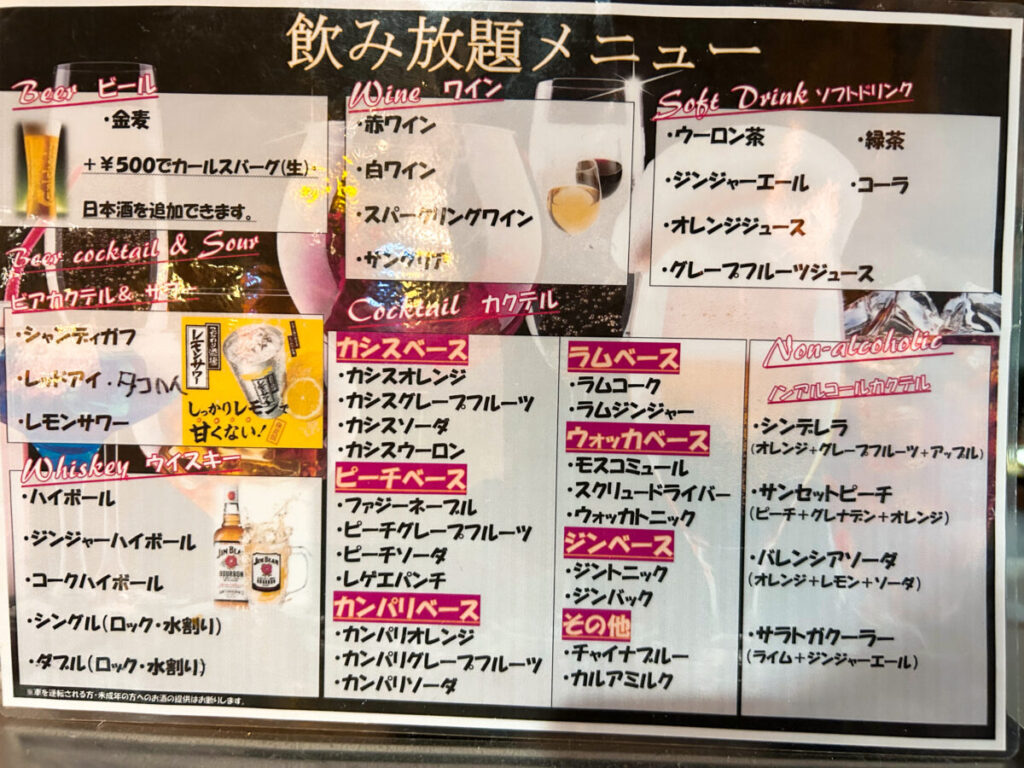 飲み放題メニュー
Beer ビール
・金麦
+¥500でカールスバーグ(生)・
日本酒を追加できます。
Beer cocktail & Sour
ビアカクテル& サワー
・シャンディガフ
・レッドアイ ・タコハイ
・レモンサワー
レモンサワー
しっかりレモンで
甘くない!
Whiskey ウイスキー
・ハイボール
・ジンジャーハイボール
・コークハイボール
・シングル(ロック・水割り)
・ダブル(ロック・水割り)
JIM BEAM
BOURBON
JIM BEAM
BOURBON
※車を運転される方・未成年の方へのお酒の提供はお断りします。
Wine ワイン
・赤ワイン
・白ワイン
・スパークリングワイン
・サングリア
Soft Drink ソフトドリンク
・ウーロン茶 ・緑茶
・ジンジャーエール ・コーラ
・オレンジジュース
・グレープフルーツジュース
Cocktail カクテル
カシスベース
・カシスオレンジ
・カシスグレープフルーツ
・カシスソーダ
・カシスウーロン
ピーチベース
・ファジーネーブル
・ピーチグレープフルーツ
・ピーチソーダ
・レゲエパンチ
カンパリベース
・カンパリオレンジ
・カンパリグレープフルーツ
・カンパリソーダ
ラムベース
・ラムコーク
・ラムジンジャー
ウォッカベース
・モスコミュール
・スクリュードライバー
・ウォッカトニック
ジンベース
・ジントニック
・ジンバック
その他
・チャイナブルー
・カルアミルク
Non-alcoholic
ノンアルコールカクテル
・シンデレラ
(オレンジ+グレープフルーツ+アップル)
・サンセットピーチ
(ピーチ+グレナデン+オレンジ)
・バレンシアソーダ
(オレンジ+レモン+ソーダ)
・サラトガクーラー
(ライム+ジンジャーエール)